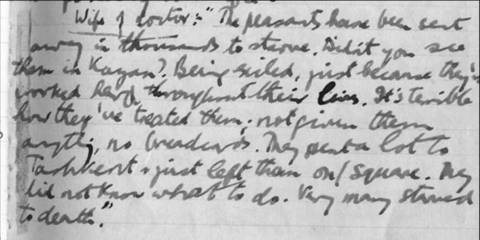 Wife of doctor:- "The peasants have been sent
away in thousands to starve. Didn't you see
them in Kazan? Being exiled, just because they've
worked hard throughout their lives. It's terrible
how they've treated them; not given them
anything, no breadcards. They sent a lot to
Tashkent & just left them on square. They
did not know what to do. Very many starved
to death."